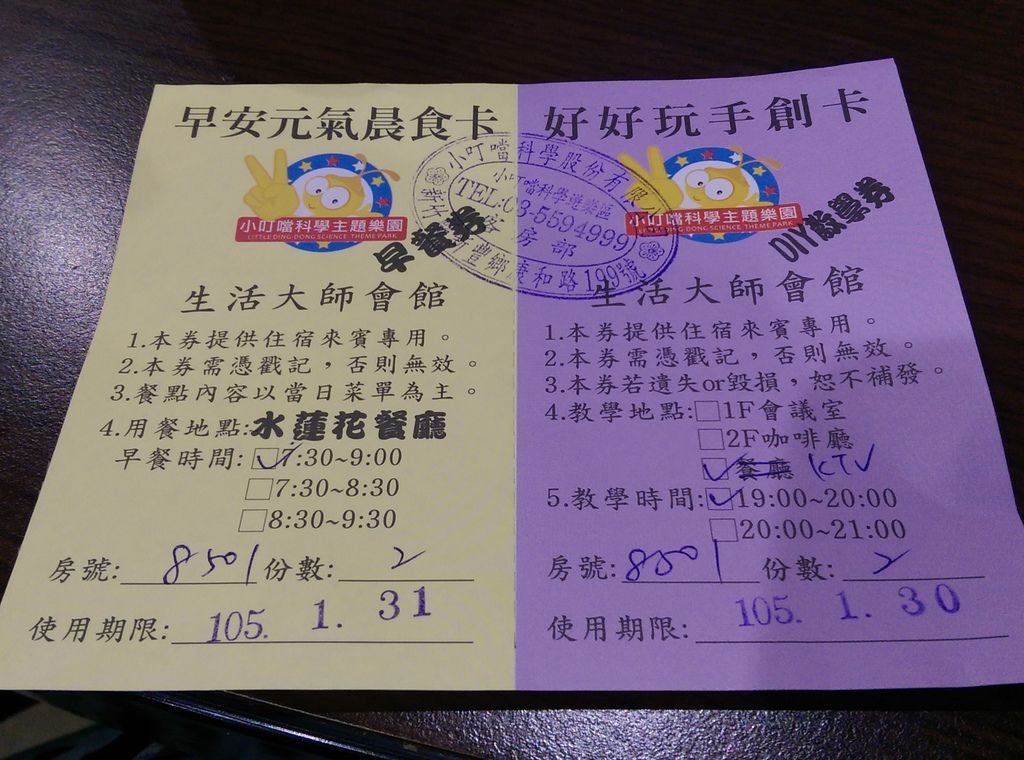 早安元氣晨食卡
小叮噹科學主題樂園
LITTLE DING-DONG SCIENCE THEME PARK
早餐券
生活大師會館
1.本券提供住宿來賓專用。
2.本券需憑戳記，否則無效。
3.餐點內容以當日菜單為主。
4.用餐地點:水蓮花餐廳
早餐時間:☑7:30~9:00
□7:30~8:30
□8:30~9:30
房號:8501 份數:2
使用期限:105. 1. 31
小叮噹科學股份有限
小叮噹科學遊樂區
TEL:03-5594999
客房部
豐鄉康和路199號
好好玩手創卡
小叮噹科學主題樂園
LITTLE DING-DONG SCIENCE THEME PARK
DIY教學券
生活大師會館
1.本券提供住宿來賓專用。
2.本券需憑戳記，否則無效。
3.本券若遺失or毀損，恕不補發。
4.教學地點:□1F會議室
□2F咖啡廳
☑餐廳 KTV
5.教學時間:☑19:00~20:00
□20:00~21:00
房號:8501 份數:2
使用期限:105. 1. 30